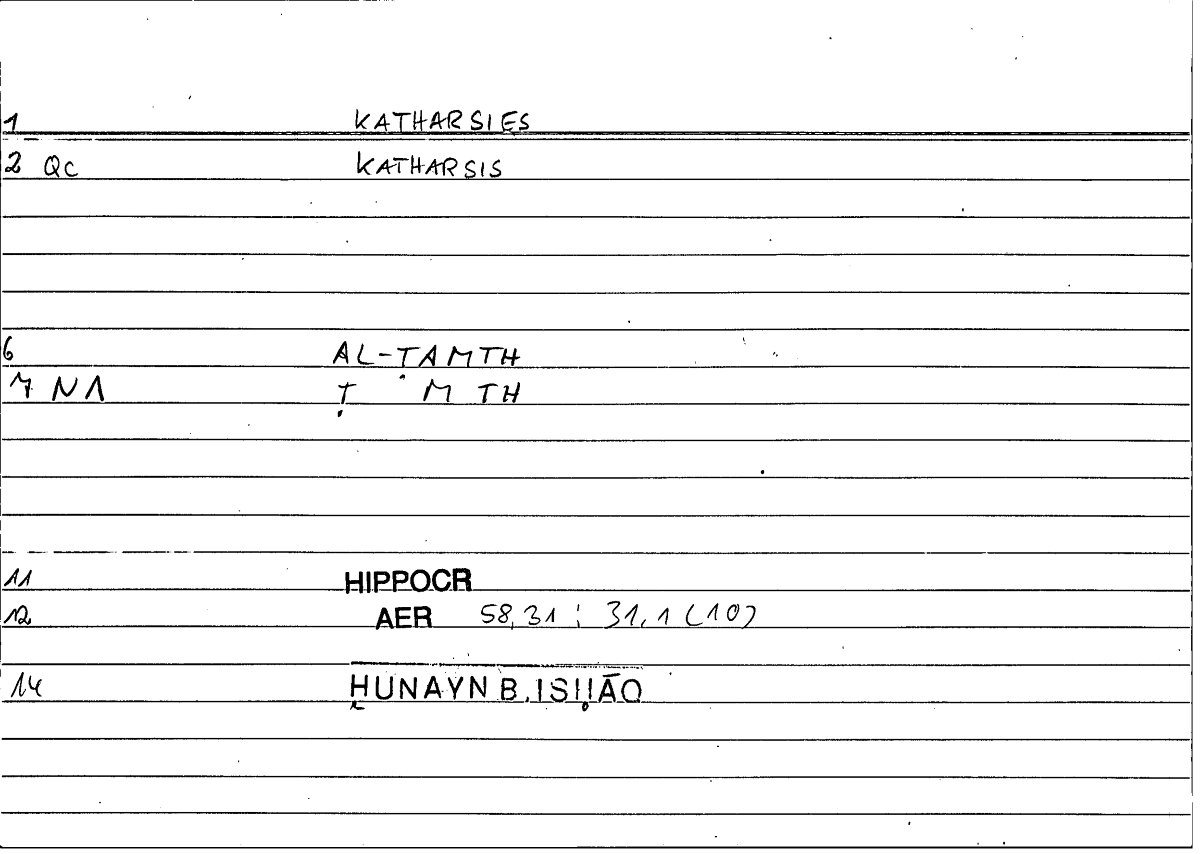 1 KATHARSIES
2 Qc KATHARSIS
6 AL-ṬAMTH
7 N1 Ṭ M TH
11 HIPPOCR
12 AER 58,31 ; 31,1 (10)
14 ḤUNAYN B. ISḤĀQ